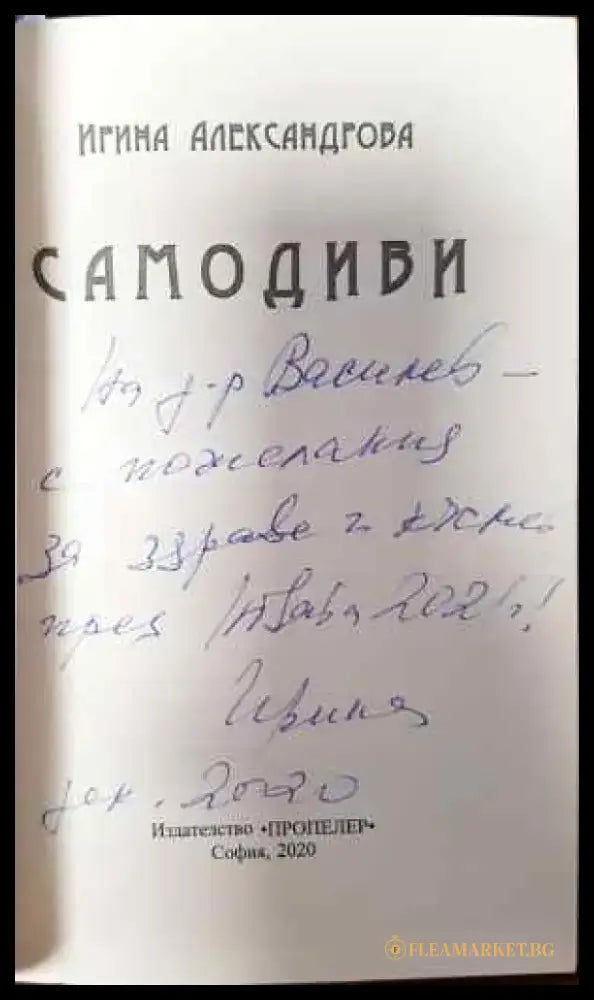 ИРИНА АЛЕКСАНДРОВА
САМОДИВИ
На д-р Василев –
с пожелания
за здраве и
през 2021г.!
Ирина
дек. 2020
Издателство •ПРОПЕЛЕР•
София, 2020
FLEAMARKET.BG